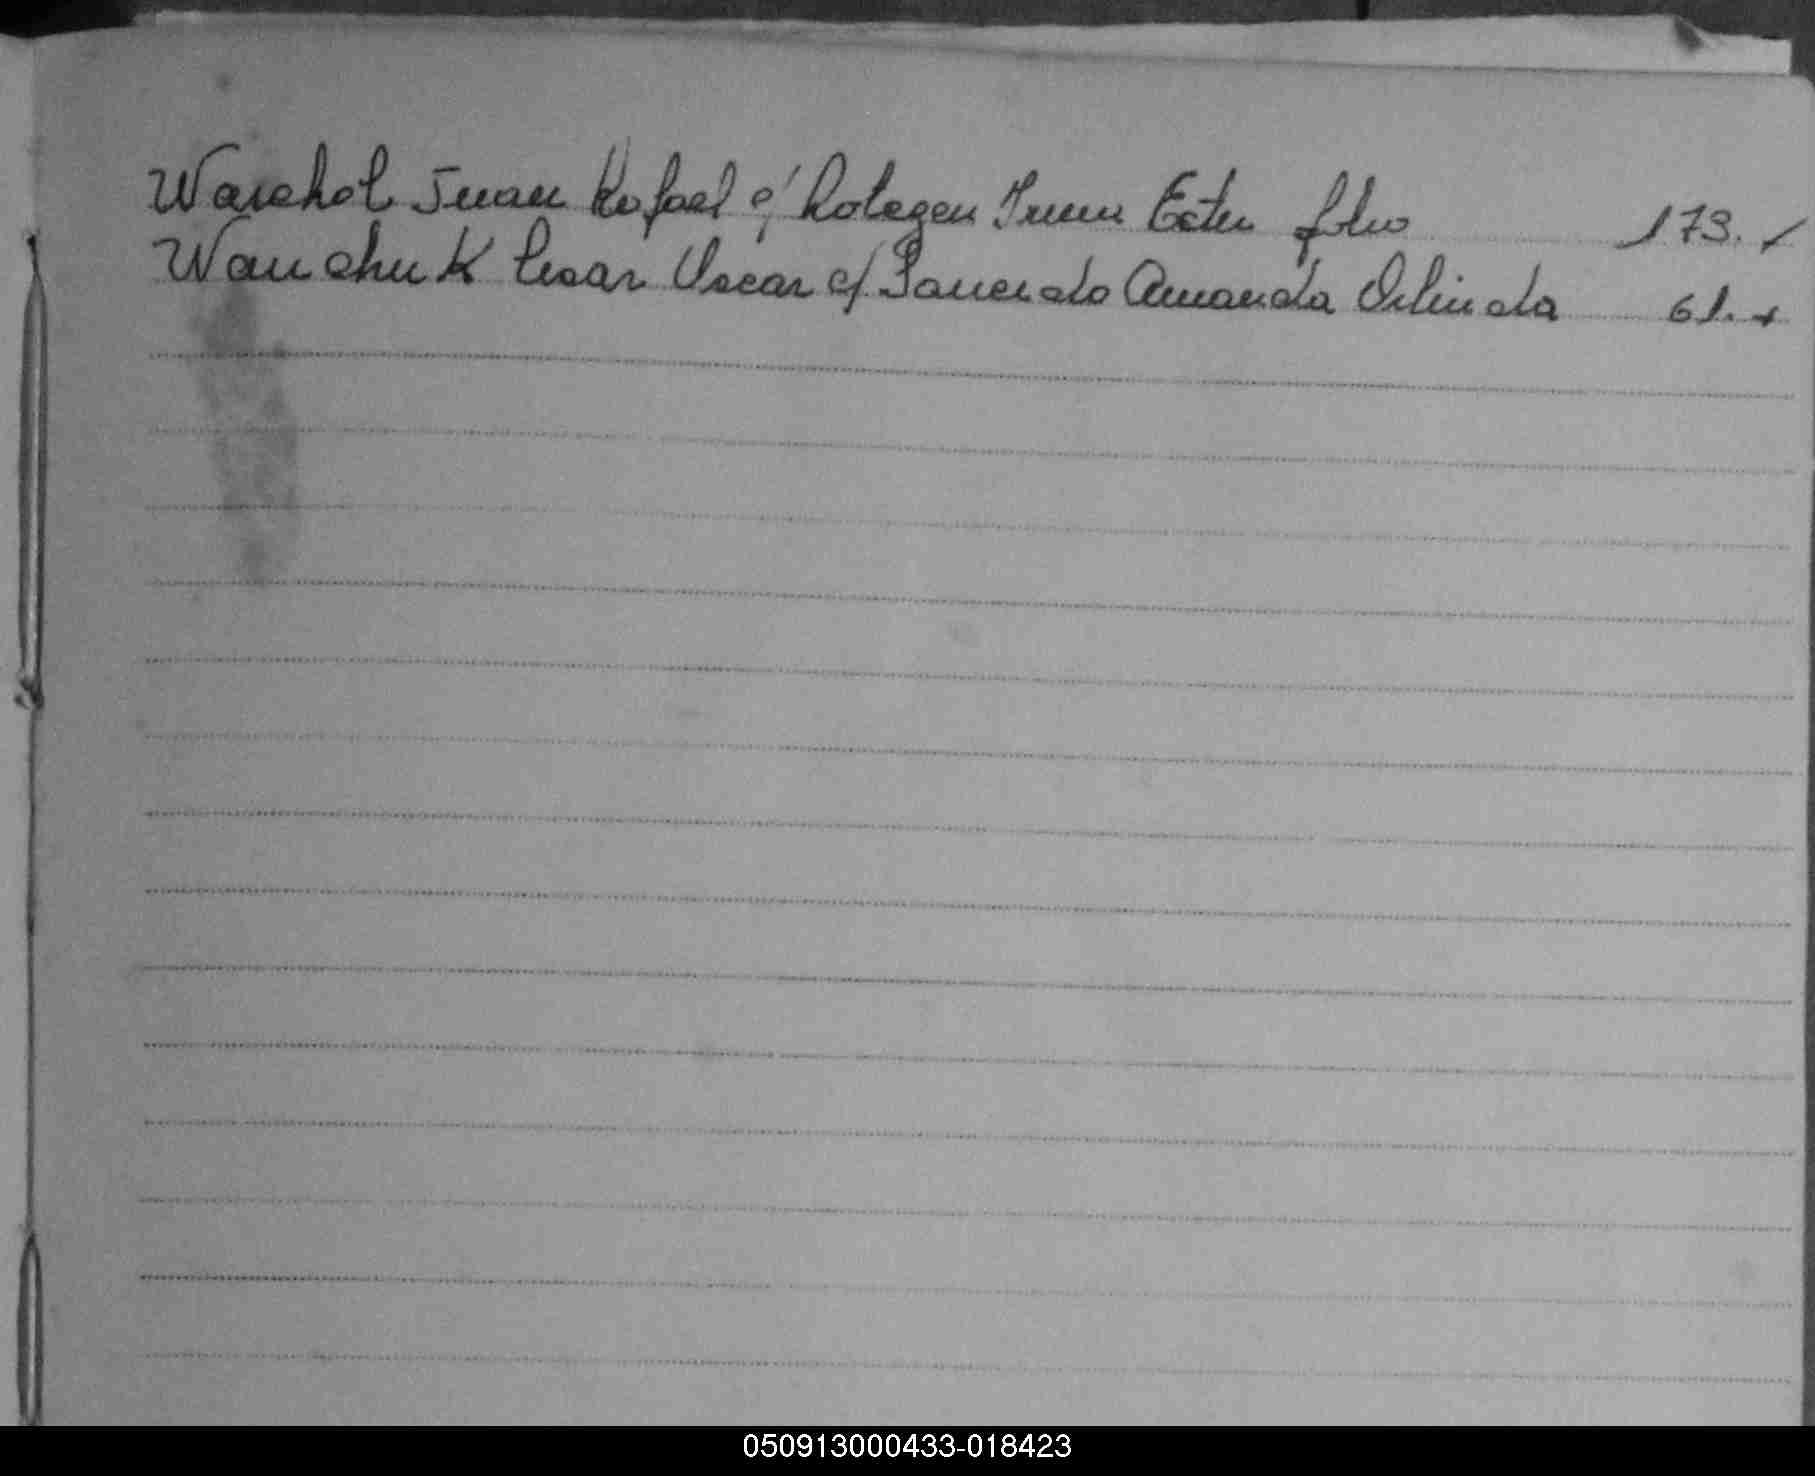 Warchol Juan Rafael c/ Rotegen Irma Ester folio 173.
Wanchuk Cesar Oscar c/ Saucedo Amanda Orlinda 61. +
050913000433-018423